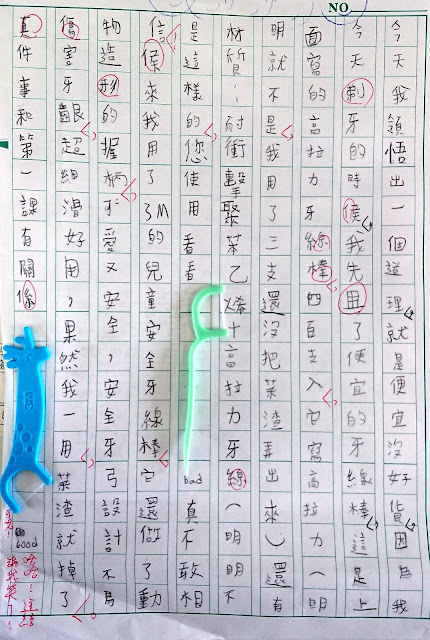 今天我領悟出一個道理,就是便宜沒好貨,因為我
今天剃牙的時候,我先用了便宜的牙線棒,這是上
面寫的高拉力牙線棒四百支入,它寫高拉力(明
明就不是,我用了三支還沒把菜渣弄出來)還有
材質:耐衝擊聚苯乙烯+高拉力牙線(明明不
是這樣的,您使用看看 bad 真不敢相
信,候來我用了3M的兒童安全牙線棒它還做了動
物造形的握柄,可愛又安全,安全牙弓設計不易
傷害牙齦,超細滑好用,果然我一用,菜渣就掉了。
真件事和第一課有關係 Good
NO